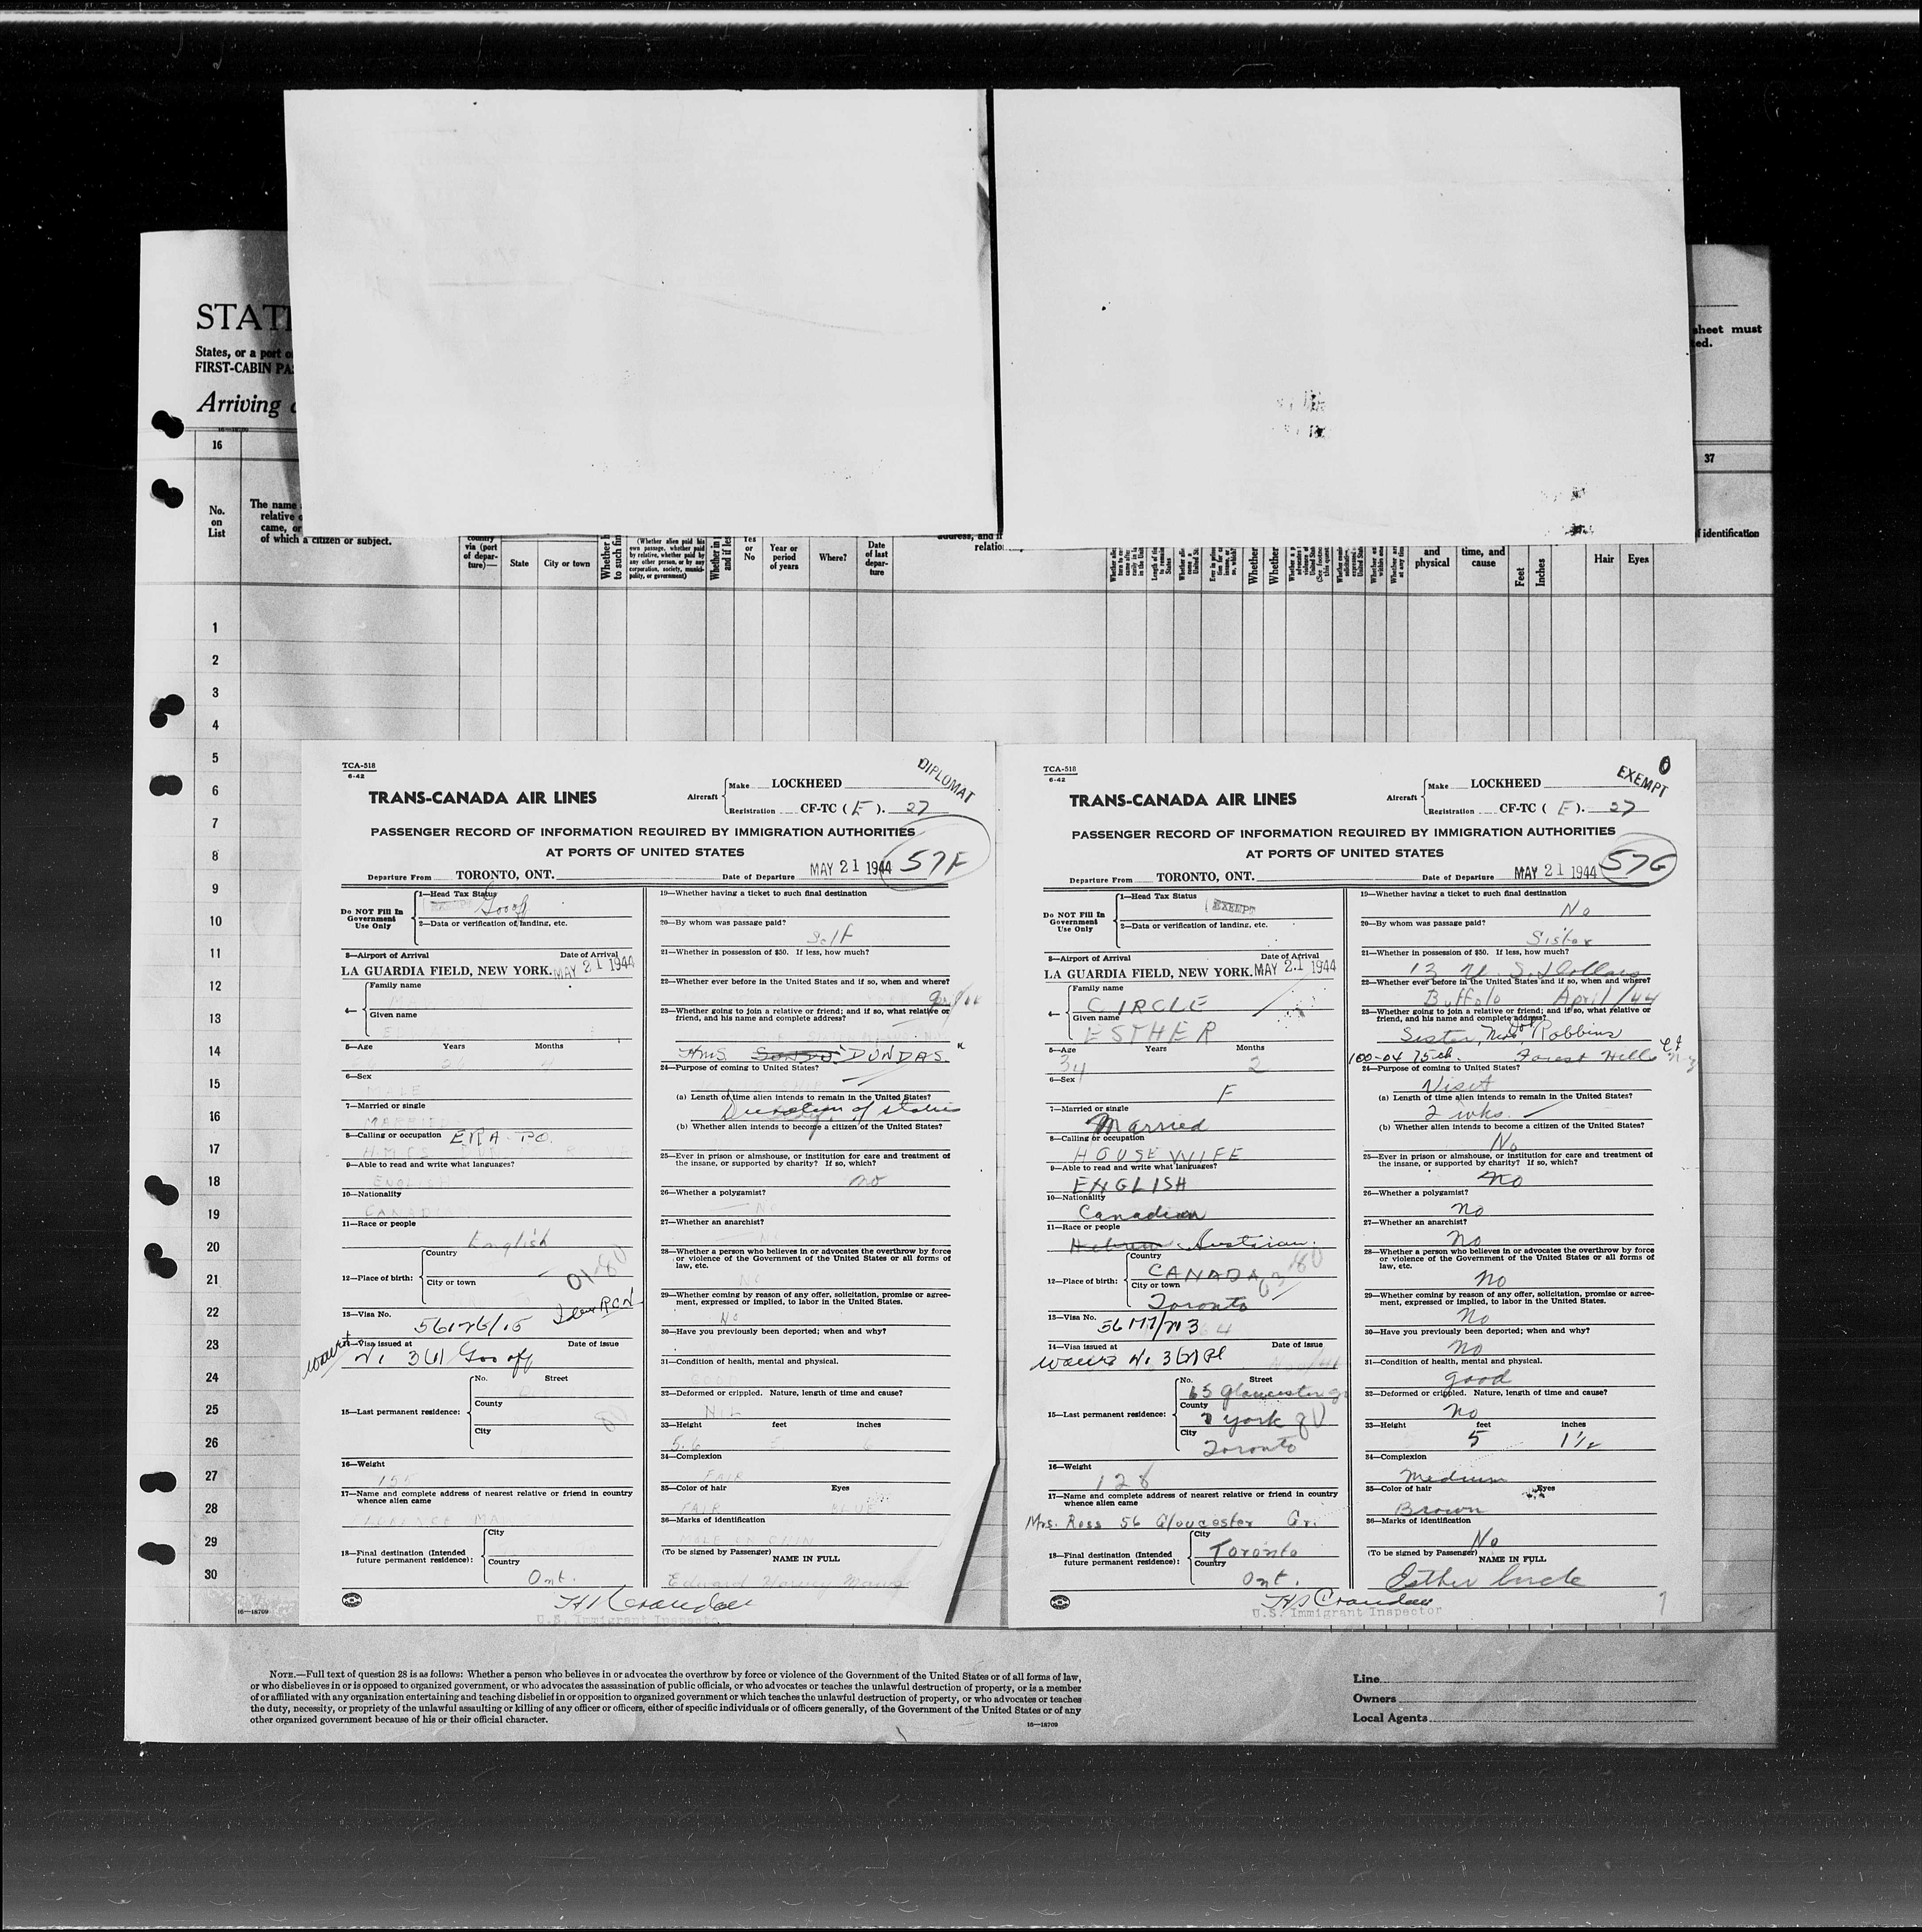 STATE
States, or a port o
FIRST-CABIN PA
Arriving
sheet must
ed.
16
37
No.
on
List
The name
relative
came, or
of which a citizen or subject.
country
via (port
of depar-
ture)—
State
City or town
Whether
to such fin
(Whether alien paid his
own passage, whether paid
by relative, whether paid by
any other person, or by any
corporation, society, munici-
pality, or government)
Whether in
and if les
Yes
or
No
Year or
period
of years
Where?
Date
of last
depar-
ture
address, and if
relatio
Whether
Whether
and
physical
time, and
cause
Feet
Inches
Hair
Eyes
f identification
1
2
3
4
5
6
7
8
9
10
11
12
13
14
15
16
17
18
19
20
21
22
23
24
25
26
27
28
29
30
16—18709
TCA-518
6-42
TRANS-CANADA AIR LINES
Aircraft
Make LOCKHEED
Registration CF-TC (E). 27
DIPLOMAT
PASSENGER RECORD OF INFORMATION REQUIRED BY IMMIGRATION AUTHORITIES
AT PORTS OF UNITED STATES
57F
Departure From TORONTO, ONT. Date of Departure MAY 21 1944
Do NOT Fill In
Government
Use Only
1—Head Tax Status
Gov off
2—Data or verification of landing, etc.
3—Airport of Arrival Date of Arrival
LA GUARDIA FIELD, NEW YORK. MAY 21 1944
4—
Family name
Given name
5—Age Years Months
6—Sex
MALE
7—Married or single
MARRIED
8—Calling or occupation ERA PO.
9—Able to read and write what languages?
ENGLISH
10—Nationality
CANADIAN
11—Race or people
English
12—Place of birth:
Country
City or town
01-80
13—Visa No.
561726/15
14—Visa issued at Date of issue
waived N. 3(1) Gov off
15—Last permanent residence:
No. Street
County
City
80
16—Weight
155
17—Name and complete address of nearest relative or friend in country
whence alien came
FLORENCE
18—Final destination (Intended
future permanent residence):
City
Country
Ont.
H S Crandall
U.S. Immigrant Inspector
19—Whether having a ticket to such final destination
20—By whom was passage paid?
Self
21—Whether in possession of $50. If less, how much?
22—Whether ever before in the United States and if so, when and where?
23—Whether going to join a relative or friend; and if so, what relative or
friend, and his name and complete address?
HMS DUNDAS
24—Purpose of coming to United States?
(a) Length of time alien intends to remain in the United States?
Duration of status
(b) Whether alien intends to become a citizen of the United States?
25—Ever in prison or almshouse, or institution for care and treatment of
the insane, or supported by charity? If so, which?
no
26—Whether a polygamist?
No
27—Whether an anarchist?
No
28—Whether a person who believes in or advocates the overthrow by force
or violence of the Government of the United States or all forms of
law, etc.
No
29—Whether coming by reason of any offer, solicitation, promise or agree-
ment, expressed or implied, to labor in the United States.
No
30—Have you previously been deported; when and why?
31—Condition of health, mental and physical.
GOOD
32—Deformed or crippled. Nature, length of time and cause?
NIL
33—Height feet inches
5.6 5 6
34—Complexion
FAIR
35—Color of hair Eyes
FAIR BLUE
36—Marks of identification
MOLE ON CHIN
(To be signed by Passenger)
NAME IN FULL
Edward Harvey
TCA-518
6-42
TRANS-CANADA AIR LINES
Aircraft
Make LOCKHEED
Registration CF-TC (E). 27
EXEMPT
0
PASSENGER RECORD OF INFORMATION REQUIRED BY IMMIGRATION AUTHORITIES
AT PORTS OF UNITED STATES
57G
Departure From TORONTO, ONT. Date of Departure MAY 21 1944
Do NOT Fill In
Government
Use Only
1—Head Tax Status
EXEMPT
2—Data or verification of landing, etc.
3—Airport of Arrival Date of Arrival
LA GUARDIA FIELD, NEW YORK. MAY 21 1944
4—
Family name
CIRCLE
Given name
ESTHER
5—Age Years Months
34 2
6—Sex
F
7—Married or single
Married
8—Calling or occupation
HOUSEWIFE
9—Able to read and write what languages?
ENGLISH
10—Nationality
Canadian
11—Race or people
Hebrew Austrian.
12—Place of birth:
Country
CANADA
City or town
Toronto
03-80
13—Visa No.
14—Visa issued at Date of issue
15—Last permanent residence:
No. Street
65 Gloucester Gr
County
York 80
City
Toronto
16—Weight
128
17—Name and complete address of nearest relative or friend in country
whence alien came
Mrs. Ross 56 Gloucester Gr.
18—Final destination (Intended
future permanent residence):
City
Toronto
Country
Ont.
H S Crandall
U.S. Immigrant Inspector
19—Whether having a ticket to such final destination
No
20—By whom was passage paid?
Sister
21—Whether in possession of $50. If less, how much?
13 U.S. dollars
22—Whether ever before in the United States and if so, when and where?
Buffalo April/44
23—Whether going to join a relative or friend; and if so, what relative or
friend, and his name and complete address?
Sister, Mrs Robbins
100-04 75th. Forest Hills
24—Purpose of coming to United States?
Visit
(a) Length of time alien intends to remain in the United States?
2 wks.
(b) Whether alien intends to become a citizen of the United States?
No
25—Ever in prison or almshouse, or institution for care and treatment of
the insane, or supported by charity? If so, which?
no
26—Whether a polygamist?
no
27—Whether an anarchist?
no
28—Whether a person who believes in or advocates the overthrow by force
or violence of the Government of the United States or all forms of
law, etc.
no
29—Whether coming by reason of any offer, solicitation, promise or agree-
ment, expressed or implied, to labor in the United States.
no
30—Have you previously been deported; when and why?
no
31—Condition of health, mental and physical.
good
32—Deformed or crippled. Nature, length of time and cause?
no
33—Height feet inches
5 1½
34—Complexion
Medium
35—Color of hair Eyes
Brown
36—Marks of identification
No
(To be signed by Passenger)
NAME IN FULL
Esther Circle
NOTE.—Full text of question 28 is as follows: Whether a person who believes in or advocates the overthrow by force or violence of the Government of the United States or of all forms of law,
or who disbelieves in or is opposed to organized government, or who advocates the assassination of public officials, or who advocates or teaches the unlawful destruction of property, or is a member
of or affiliated with any organization entertaining and teaching disbelief in or opposition to organized government or which teaches the unlawful destruction of property, or who advocates or teaches
the duty, necessity, or propriety of the unlawful assaulting or killing of any officer or officers, either of specific individuals or of officers generally, of the Government of the United States or of any
other organized government because of his or their official character.
16—18709
Line
Owners
Local Agents